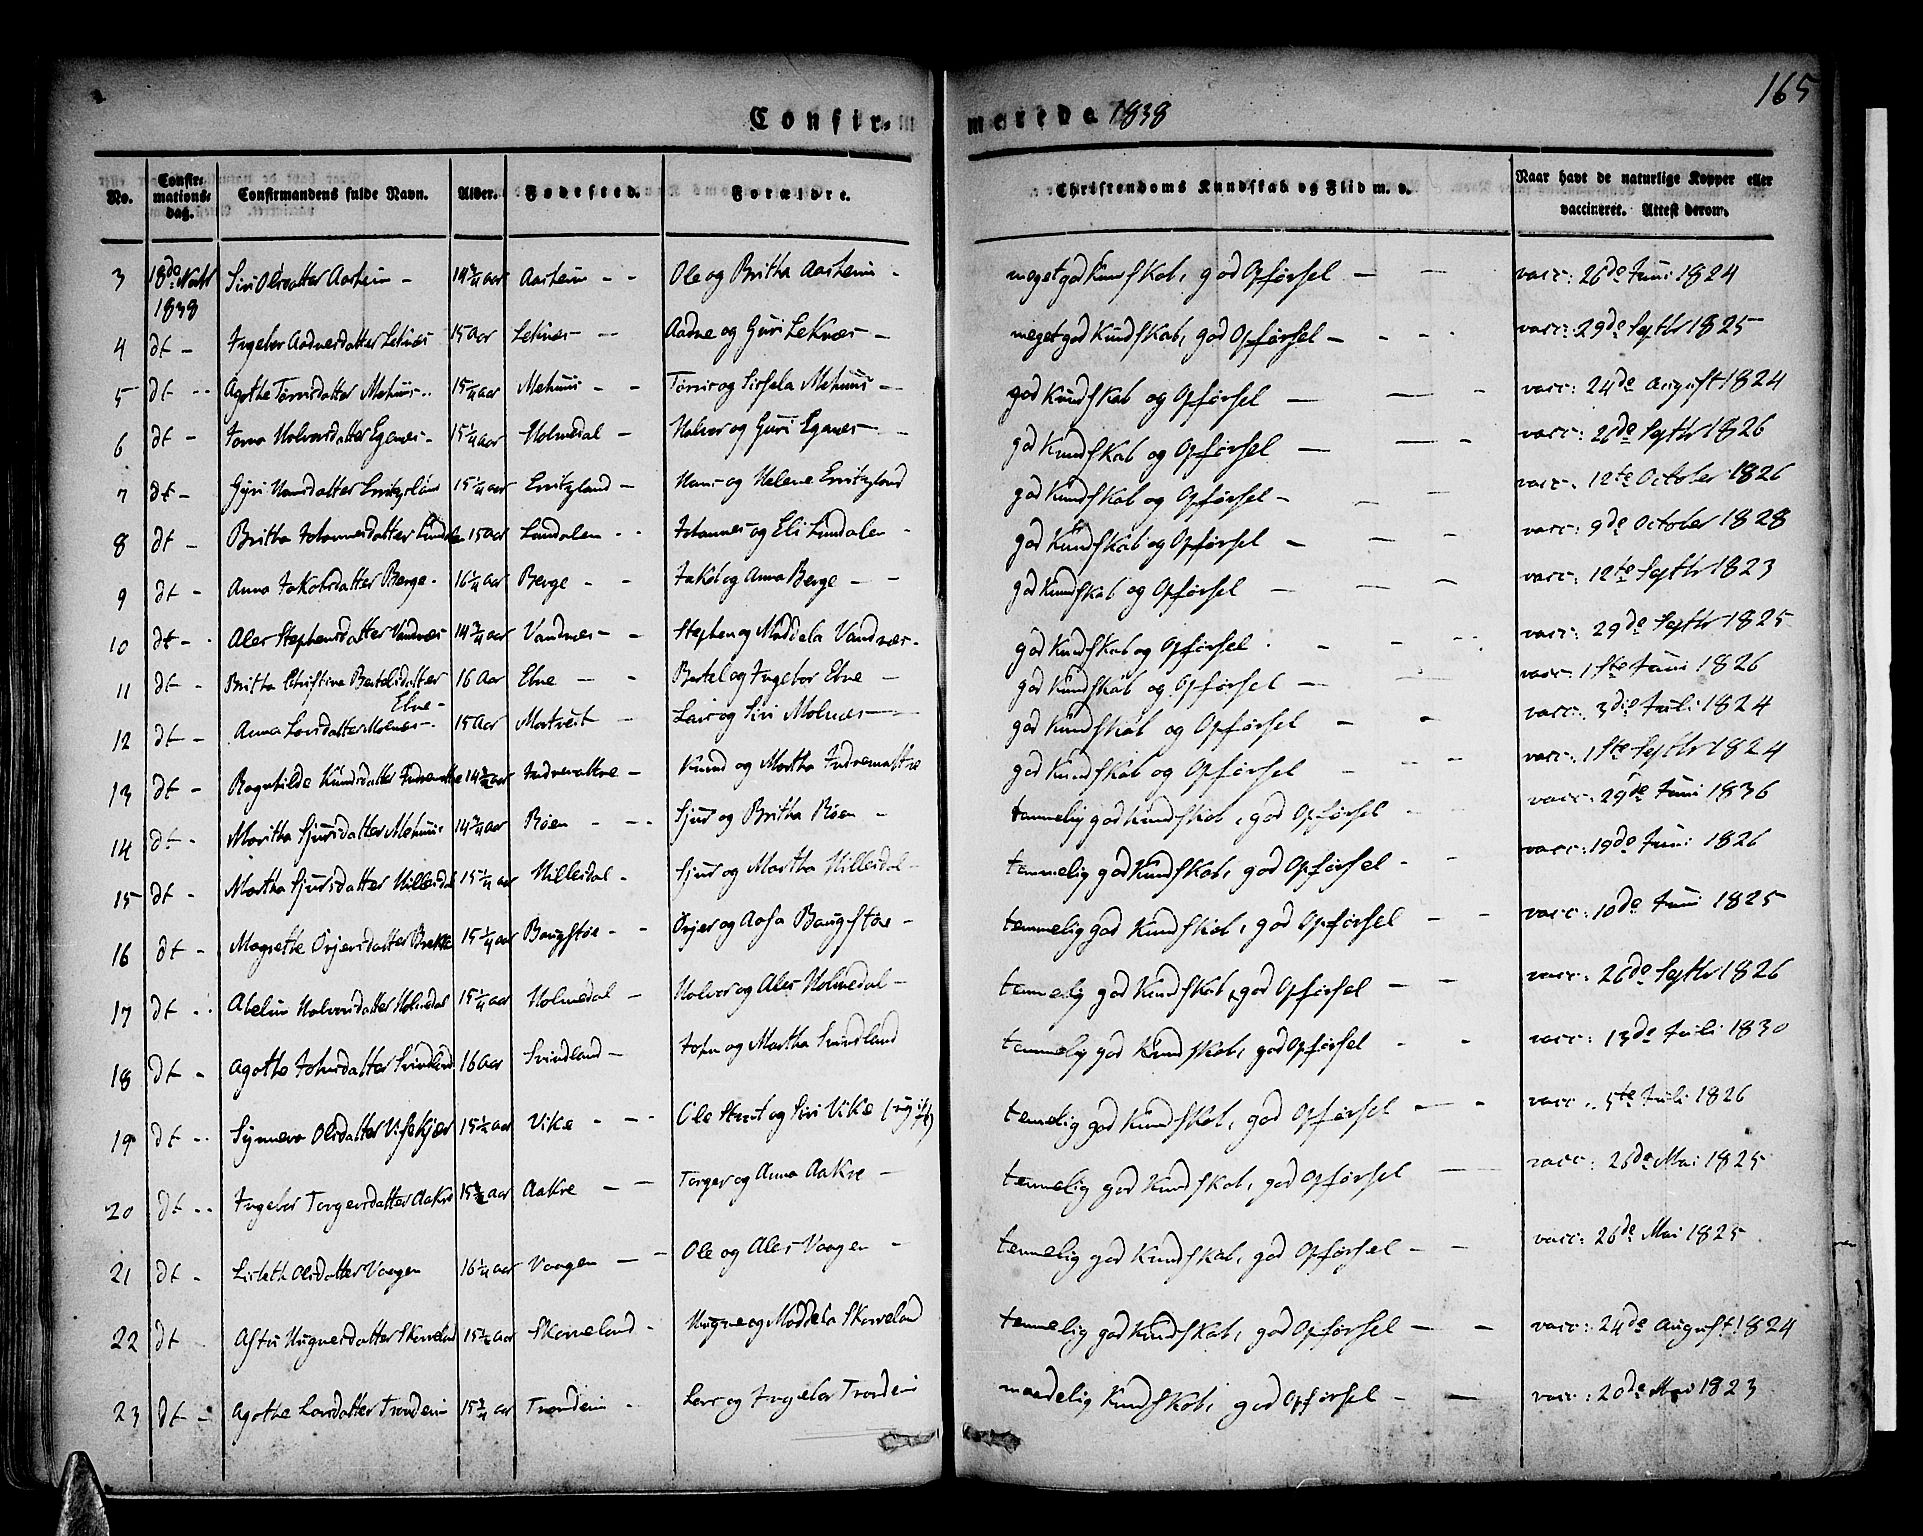 165
Confir- merede 1838
No. Confirmations-dag. Confirmandens fulde Navn. Alder. Fødested. Forældre. Christendoms Kundskab og Flid m. v. Naar havt de naturlige Kopper eller vaccineret. Attest derom.
3 18de 1838 Siri Olsdatter Aarheim - 14 3/4 aar Aarheim - - Ole og Britha Aarheim - meget god Kundskab, god Opførsel - - vacc: 26de Juni 1824
4 dt - Ingebor Aadnesdatter Leknæs 15 aar Leknæs - - Aadne og Guri Leknæs - meget god Kundskab, god Opførsel - - - vacc: 29de Septbr 1825
5 dt - - Agathe Mehuus - 15 1/4 aar Mehuus - - og Mehuus - god Kundskab og Opførsel - - - vacc: 24de August 1824
6 dt - Halvorsdatter Eganes - 15 1/4 aar Holmedal - Halvor og Guri Eganes - god Kundskab og Opførsel - - - vacc: 26de Septbr 1826
7 dt - Guri Hansdatter 15 1/4 aar - Hans og Helene god Kundskab og Opførsel - - - vacc: 12te October 1826
8 dt - Britha Johannesdatter 15 aar Landalen - - Johannes og Eli Landalen - god Kundskab og Opførsel - - - vacc: 9de October 1828
9 dt - Anna Jakobsdatter Berge - 16 1/4 aar Berge - - Jakob og Anna Berge - - god Kundskab og Opførsel - - - vacc: 12te Septbr 1823
10 dt - Ales Stephensdatter Vandnæs 14 3/4 aar Vandnæs - - Stephen og Maddela Vandnæs - god Kundskab og Opførsel - - - vacc: 29de Septbr 1825
11 dt - Britha Christine Bertelsdatter Ebne - 16 aar Ebne - - Bertel og Ingebor Ebne - god Kundskab og Opførsel - - vacc: 1ste Juni 1826
12 dt - Anna Larsdatter Molnæs - 15 aar Mortveit - Lars og Siri Molnæs - god Kundskab og Opførsel - - vacc: 3die Juli 1824
13 dt - Ragnhilde Knudsdatter 14 3/4 aar - Knud og Martha god Kundskab og Opførsel - - - vacc: 1ste Septbr 1824
14 dt - Maritha Sjursdatter Mehuus 14 3/4 aar Røen - - - Sjur og Britha Røen - temmelig god Kundskab, god Opførsel - vacc: 29de Juni 1836
15 dt - Martha Sjursdatter Hillesdal 15 1/4 aar Hillesdal - Sjur og Martha Hillesdal - temmelig god Kundskab, god Opførsel - - vacc: 19de Juni 1826
16 dt - Magrethe Ørjersdatter Brekke 15 1/4 aar Baugstøe - - Ørjer og Aasa Baugstøe - temmelig god Kundskab, god Opførsel - - vacc: 10de Juni 1825
17 dt - - Abelun Halvorsdatter Holmedal 15 1/4 aar Holmedal - Halvor og Ales Holmedal - temmelig god Kundskab, god Opførsel - - vacc: 26de Septbr 1826
18 dt - Agathe Johnsdatter Svindland 16 aar Svindland - John og Martha Svindland temmelig god Kundskab, god Opførsel - - vacc: 13de Juli 1830
19 dt - - Synneva Olsdatter 15 1/2 aar Vike - - - Ole og Siri Vike temmelig god Kundskab, god Opførsel - - vacc: 5te Juli 1826
20 dt - - Ingebor Torgersdatter Aakre 15 1/2 aar Aakre - - Torger og Anna Aakre - temmelig god Kundskab, god Opførsel - vacc: 26de Mai 1825
21 dt - Lisbeth Olsdatter Vaagen 16 1/4 aar Vaagen - - Ole og Ales Vaagen - temmelig god Kundskab, god Opførsel - - vacc: 26de Mai 1825
22 dt Magnesdatter Skorveland 15 1/2 aar Skorveland - Magne og Maddela Skorveland temmelig god Kundskab, god Opførsel - - vacc: 24de August 1824
23 dt - Agathe Larsdatter Trondein 15 3/4 aar Trondein - Lars og Ingebor Trondein maadelig Kundskab, god Opførsel - - vacc: 20de Mai 1823